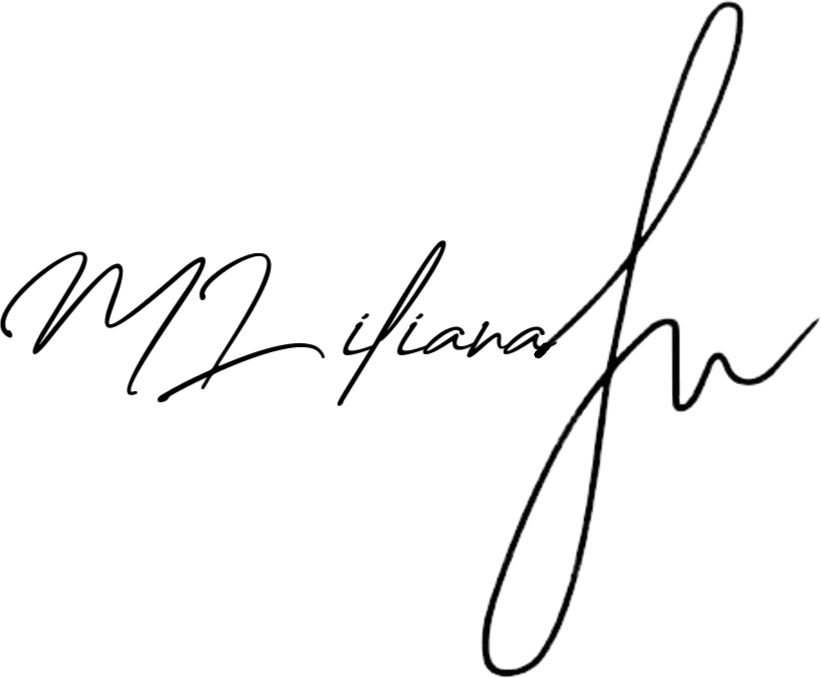 M Liliana